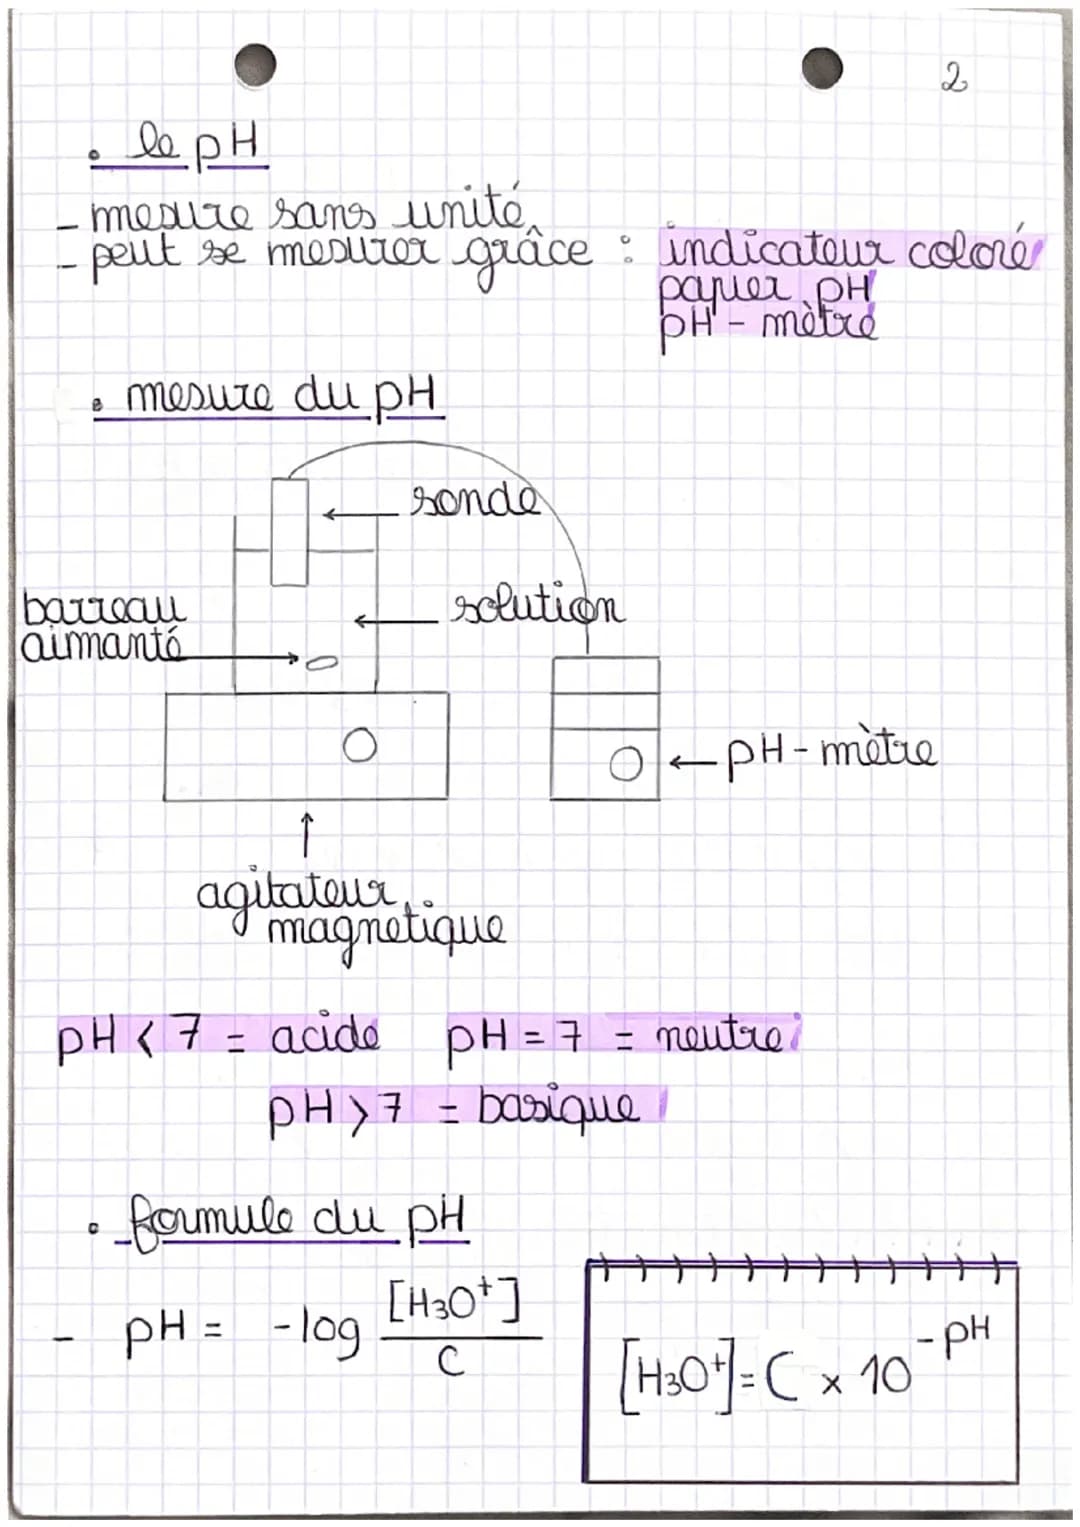 2
• le pH
- mesure sans unité
- peut se mesurer grâce : indicateur coloré
papier pH
pH - mètre
• mesure du pH
sonde
barreau
aimanté
solution
pH - mètre
agitateur
magnétique
pH < 7 = acide pH = 7 = neutre
pH > 7 = basique
• formule du pH
- pH = -log [H3O+] / C
[H3O+] = C x 10^-pH